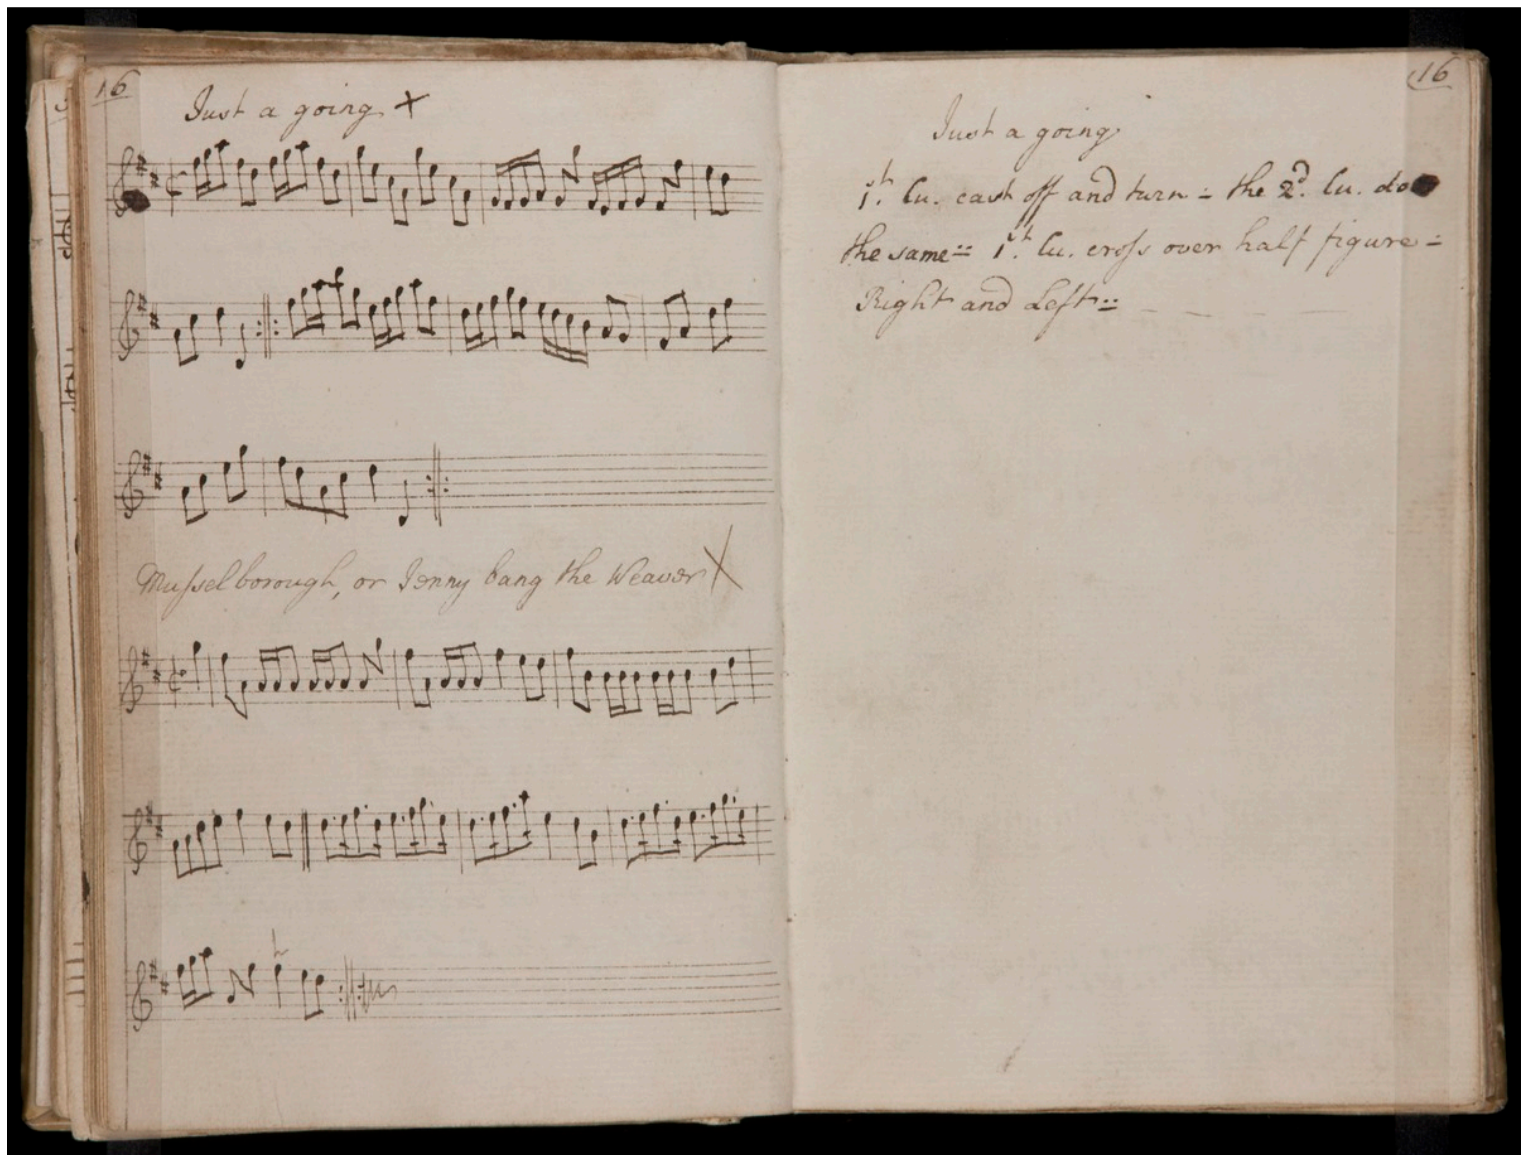 16
Just a going X
Muſselborough, or Jenny bang the Weaver X
16
Just a going
1.st Cu. cast off and turn = the 2.d Cu. do
the same = 1.st Cu. croſs over half figure =
Right and Left =